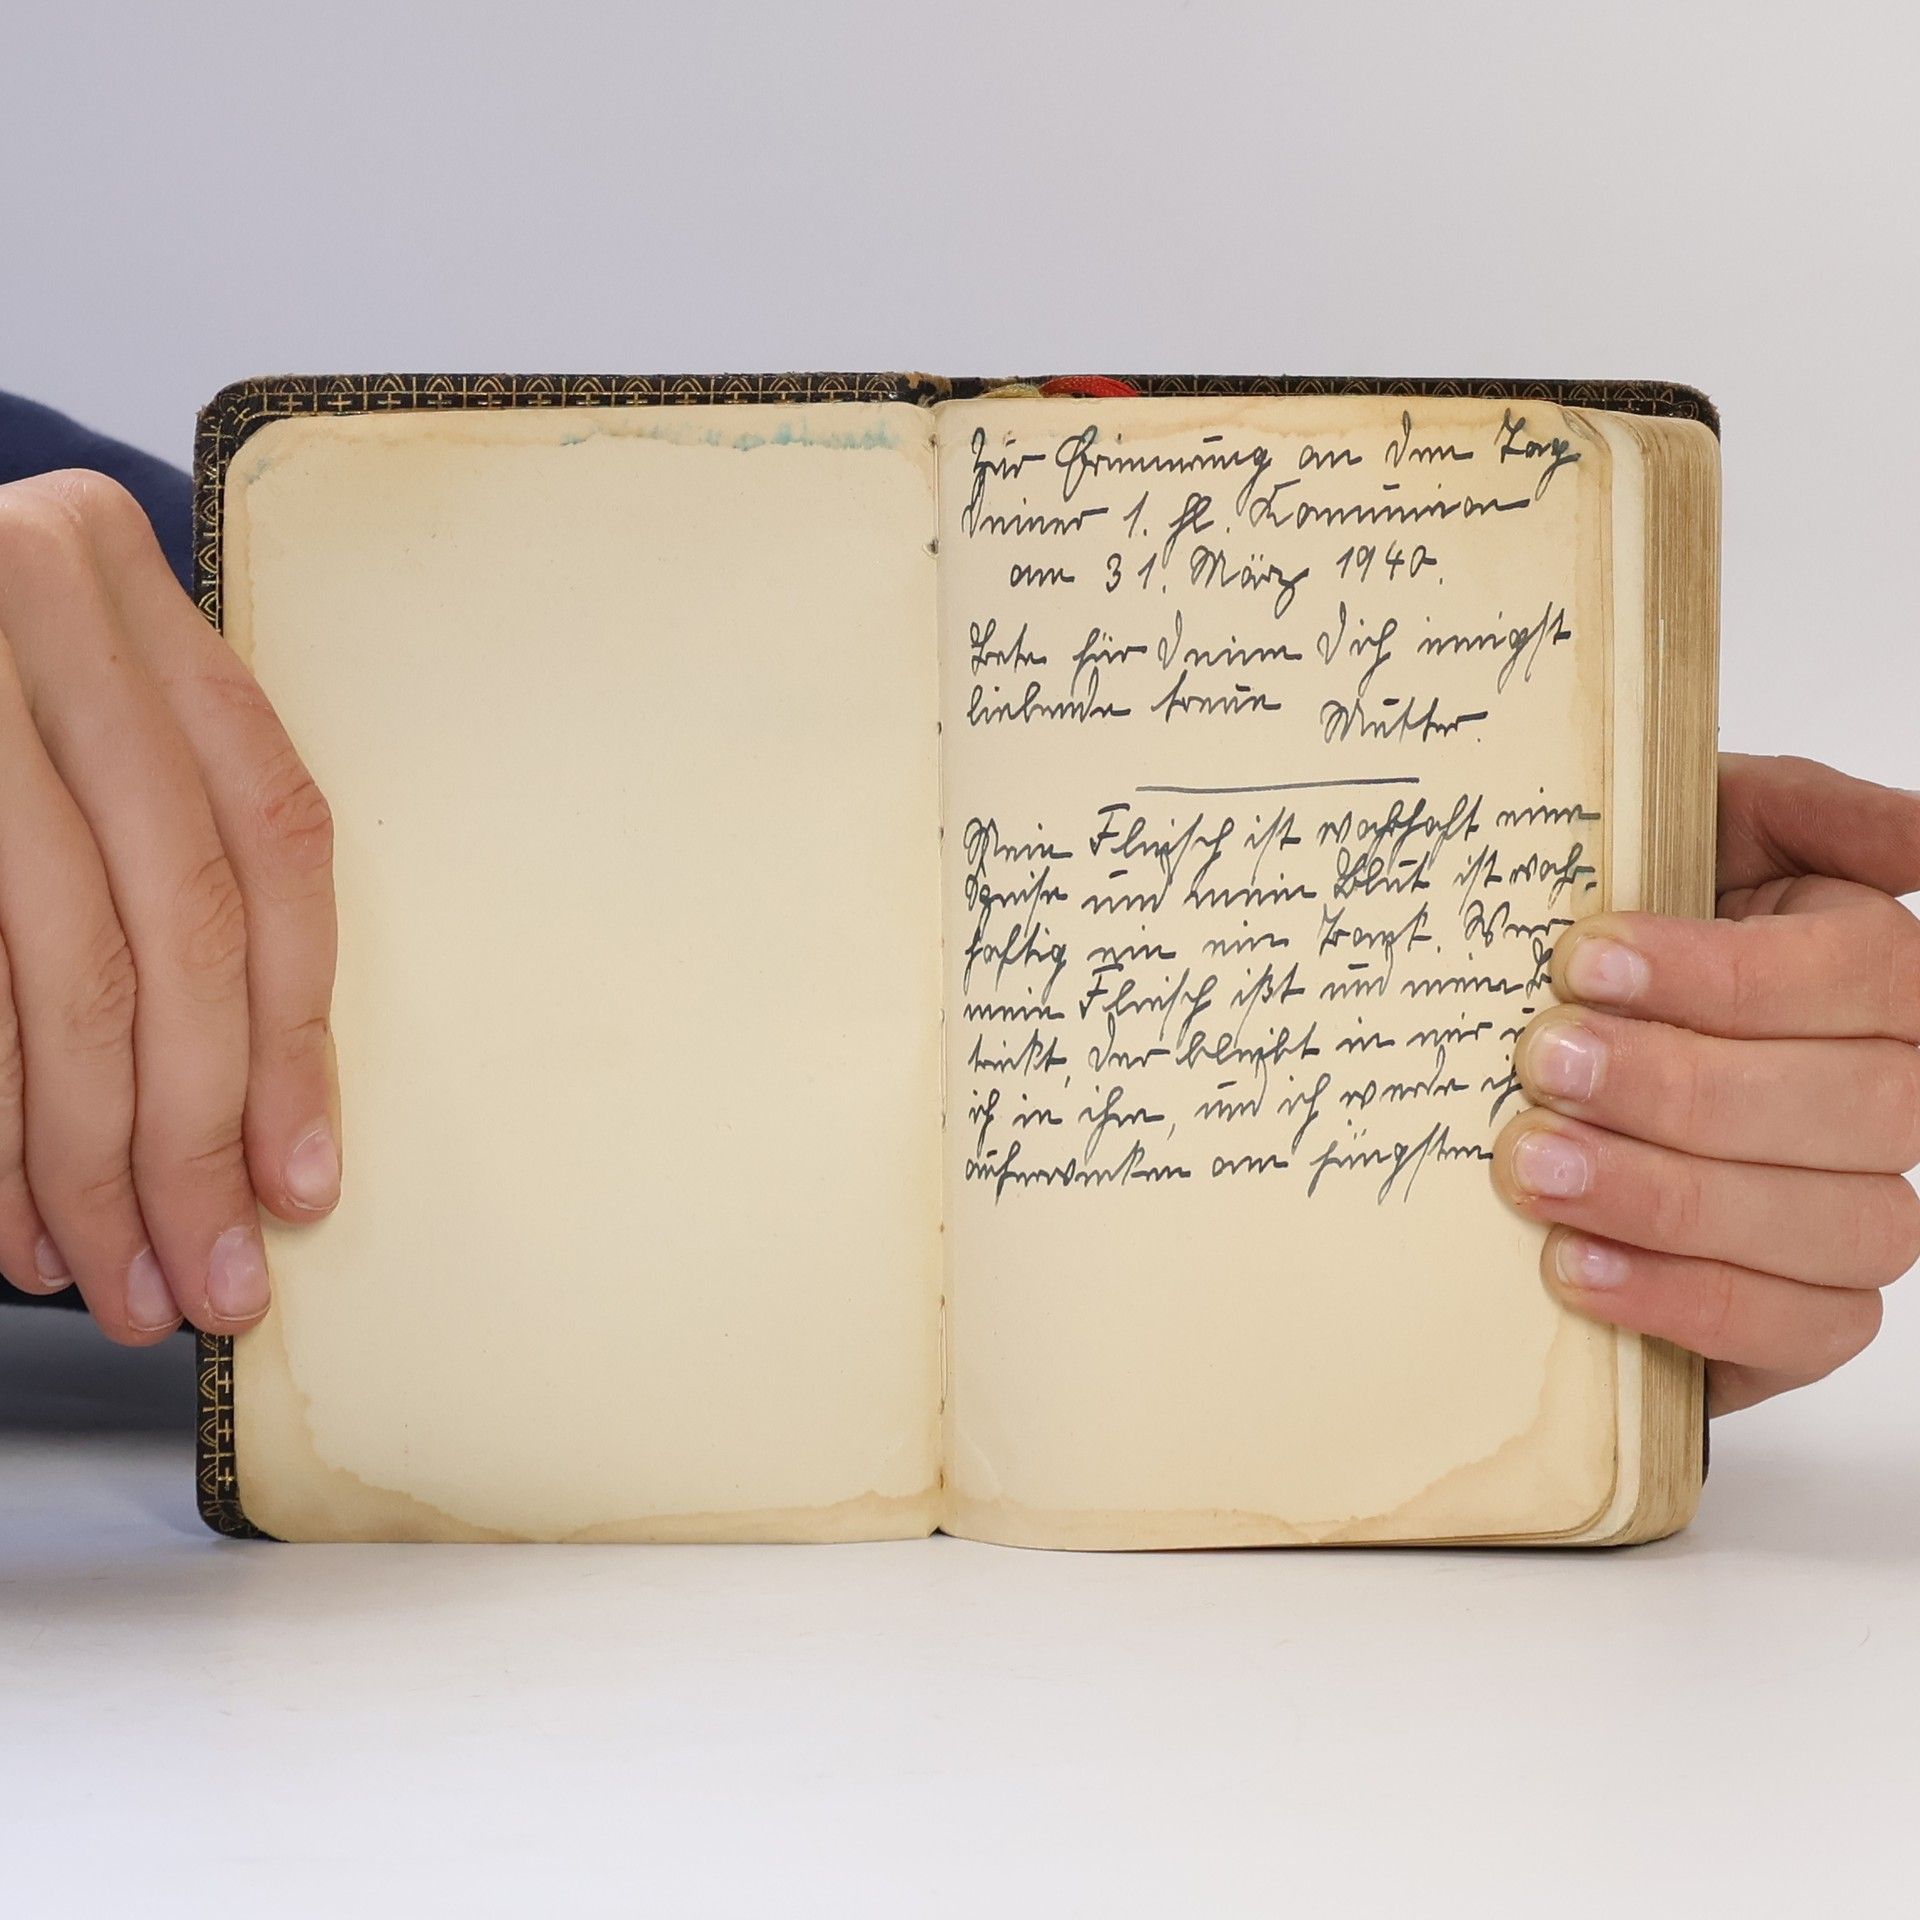 Zur Erinnerung an den Tag
Deiner 1. hl. Komunion
am 31. März 1940.
Bete für Deine Dich innigst
liebende treue
Mutter.
Mein Fleisch ist wahrhaft eine
Speise und mein Blut ist wahr-
haftig ein ein Trank. Wer
mein Fleisch ißt und mein
trinkt, der bleibt in mir
ich in ihm, und ich werde
auferwecken am jüngsten